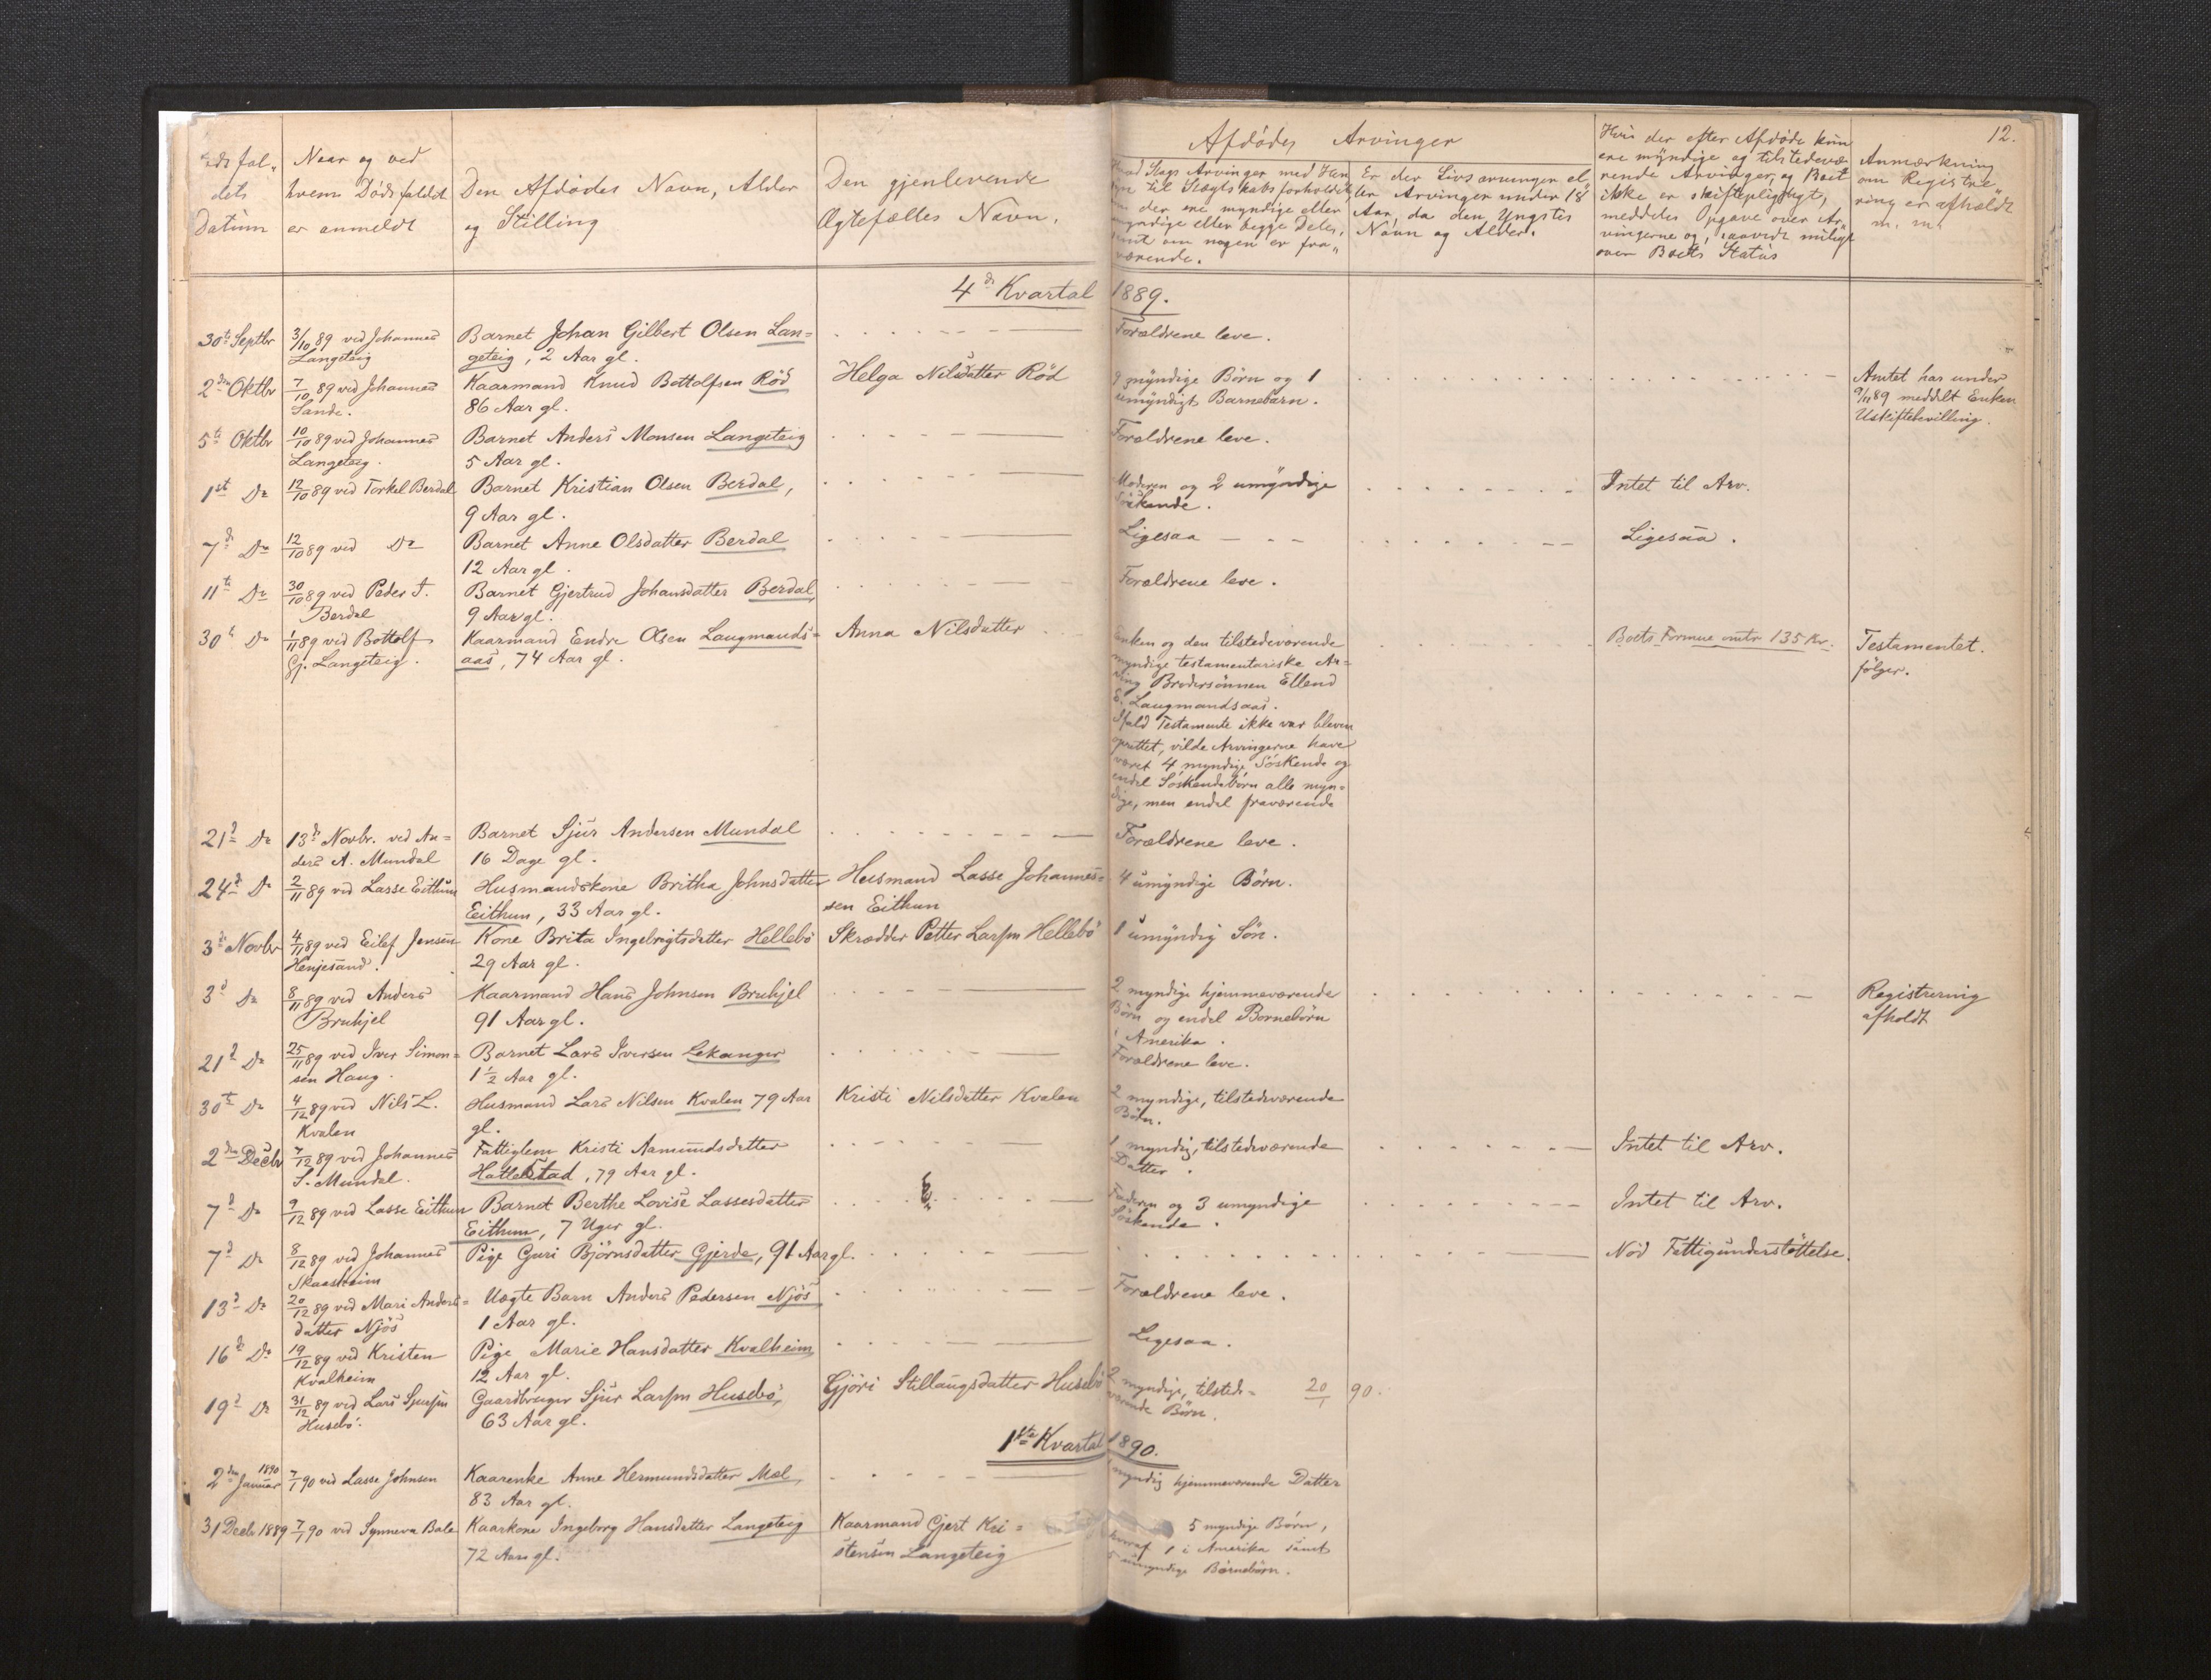 12.
dets
Datum
Naar og ved
hvem Dødsfaldet
er anmeldt
Den Afdødes Navn, Alder
og Stilling
Den gjenlevende
Ægtefælles Navn.
Afdødes Arvinger
Hvad Slags Arvinger med Hen
syn til Slægtskabsforholdet,
om der ere myndige eller
umyndige eller begge Dele,
samt om nogen er fra„
værende.
Er der Livsarvinger el„
ler Arvinger under 18
Aar, da den Yngstes
Navn og Alder.
Hvis der efter Afdøde kun
ere myndige og tilstedevæ
rende Arvinger, og Boet
ikke er skiftepligtigt,
meddeles Opgave over Ar„
vingerne og, saavidt muligt
over Boets Status
Anmærkning
om Registre„
ring er afholdt
m. m.
4de Kvartal 1889.
30te Septbr 3/10 89 ved Johannes Barnet Johan Gilbert Olsen Lan= Forældrene leve.
Langeteig geteig, 2 Aar gl.
2den Oktbr 7/10 89 ved Johannes Kaarmand Knud Bottolfsen Röd Helga Nilsdatter Röd 9 myndige Börn og 1 Amtet har under
Sande. 86 Aar gl. umyndigt Barnebarn. 9/11 89 meddelt Enken
Uskiftebevilling.
5te Oktbr 10/10 89 ved Johannes Barnet Anders Monsen Langeteig Forældrene leve.
Langeteig. 5 Aar gl.
1st Do 12/10 89 ved Torkel Berdal Barnet Kristian Olsen Berdal, Moderen og 2 umyndige Intet til Arv.
9 Aar gl. Söskende.
7de Do 12/10 89 ved Do Barnet Anne Olsdatter Berdal Ligesaa Ligesaa.
12 Aar gl.
11te Do 30/10 89 ved Peder J. Barnet Gjertrud Johansdatter Berdal, Forældrene leve.
Berdal 9 Aar gl.
30te Do 1/11 89 ved Bottolf Kaarmand Endre Olsen Laugmands= Anna Nilsdatter Enken og den tilstedeværende Boets Formue omtr 135 Kr. Testamentet
Gj. Langeteig. aas, 74 Aar gl. myndige testamentariske Ar= følger.
ving Brodersönnen Ellend
E. Laugmandsaas.
Ifald Testamente ikke var bleven
oprettet, vilde Arvingerne have
været 4 myndige Söskende og
endel Söskendebörn alle myn=
dige, men endel fraværende
21de Do 13de Novbr. ved An= Barnet Sjur Andersen Mundal Forældrene leve.
ders A. Mundal 16 Dage gl.
24de Do 2/11 89 ved Lasse Eithun Husmandskone Britha Johnsdatter Husmand Lasse Johannes= 4 umyndige Börn.
Eithun, 33 Aar gl. sen Eithun
3de Novbr 4/11 89 ved Eilef Jensen Kone Brita Ingebrigtsdatter Hellebö Skrædder Petter Larsen Hellebö 1 umyndig Sön.
Henjesand. 29 Aar gl.
3de Do 8/11 89 ved Anders Kaarmand Hans Johnsen Bruhjel 2 myndige hjemmeværende Registrering
Bruhjel 91 Aar gl. Börn og endel Börnebörn afholdt
i Amerika.
21de Do 25/11 89 ved Iver Simon= Barnet Lars Iversen Lekanger Forældrene leve.
sen Haug. 1 1/2 Aar gl.
30te Do 4/12 89 ved Nils L. Husmand Lars Nilsen Kvalen 79 Aar Kristi Nilsdatter Kvalen 2 myndige, tilstedeværende
Kvalen gl. Börn.
2den Decbr 7/12 89 ved Johannes Fattiglem Kristi Aamundsdatter 1 myndig, tilstedeværende Intet til Arv.
S. Mundal. Hatlestad, 79 Aar gl. Datter.
7de Do 9/12 89 ved Lasse Eithun Barnet Berthe Lovise Lassesdatter Faderen og 3 umyndige Intet til Arv.
Eithun, 7 Uger gl. Söskende.
7de Do 8/12 89 ved Johannes Pige Guri Björnsdatter Gjerde, 91 Aar gl. Nöd Fattigunderstöttelse.
Skaasheim
13de Do 20/12 89 ved Mari Anders= Uægte Barn Anders Pedersen Njös Forældrene leve.
datter Njös 1 Aar gl.
16de Do 19/12 89 ved Kristen Pige Marie Hansdatter Kvalheim Ligesaa.
Kvalheim 12 Aar gl.
19de Do 31/12 89 ved Lars Sjursen Gaardbruger Sjur Larsen Husebö, Gjöri Stillaugsdatter Husebö 2 myndige, tilstede= 20/1 90.
Husebö. 63 Aar gl. værende Börn.
1ste Kvartal 1890.
2den Januar 1890 7/1 90 ved Lasse Johnsen Kaarenke Anne Hermundsdatter Mæl, 1 myndig hjemmeværende Datter
83 Aar gl.
31 Decbr 1889 7/1 90 ved Synneva Bale Kaarkone Ingeborg Hansdatter Langeteig Kaarmand Gjert Kri= 5 myndige Börn,
72 Aar gl. stensen Langeteig hvoraf 1 i Amerika samt
5 umyndige Börnebörn.